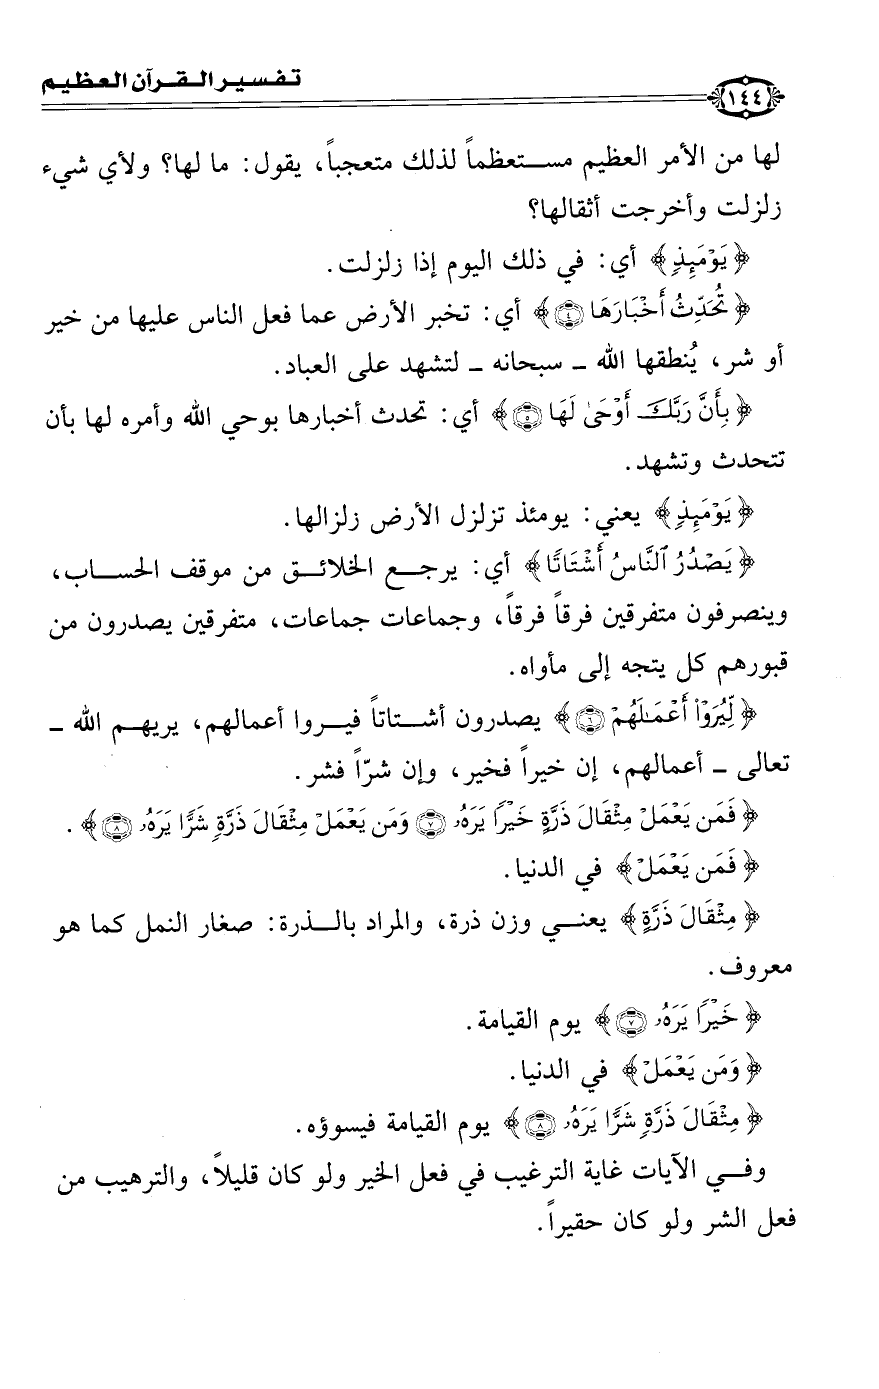 تفسير القرآن العظيم
١٤٤
لها من الأمر العظيم مستعظماً لذلك متعجباً، يقول: ما لها؟ ولأي شيء
زلزلت وأخرجت أثقالها؟
﴿يَوْمَئِذٍ﴾ أي: في ذلك اليوم إذا زلزلت.
﴿تُحَدِّثُ أَخْبَارَهَا ٤﴾ أي: تخبر الأرض عما فعل الناس عليها من خير
أو شر، يُنطقها الله - سبحانه - لتشهد على العباد.
﴿بِأَنَّ رَبَّكَ أَوْحَىٰ لَهَا ٥﴾ أي: تحدث أخبارها بوحي الله وأمره لها بأن
تتحدث وتشهد.
﴿يَوْمَئِذٍ﴾ يعني: يومئذ تزلزل الأرض زلزالها.
﴿يَصْدُرُ ٱلنَّاسُ أَشْتَاتًا﴾ أي: يرجع الخلائق من موقف الحساب،
وينصرفون متفرقين فرقاً فرقاً، وجماعات جماعات، متفرقين يصدرون من
قبورهم كل يتجه إلى مأواه.
﴿لِّيُرَوْا۟ أَعْمَـٰلَهُمْ ٦﴾ يصدرون أشتاتاً فيروا أعمالهم، يريهم الله -
تعالى - أعمالهم، إن خيراً فخير، وإن شرّاً فشر.
﴿فَمَن يَعْمَلْ مِثْقَالَ ذَرَّةٍ خَيْرًا يَرَهُۥ ٧ وَمَن يَعْمَلْ مِثْقَالَ ذَرَّةٍ شَرًّا يَرَهُۥ ٨﴾.
﴿فَمَن يَعْمَلْ﴾ في الدنيا.
﴿مِثْقَالَ ذَرَّةٍ﴾ يعني وزن ذرة، والمراد بالذرة: صغار النمل كما هو
معروف.
﴿خَيْرًا يَرَهُۥ ٧﴾ يوم القيامة.
﴿وَمَن يَعْمَلْ﴾ في الدنيا.
﴿مِثْقَالَ ذَرَّةٍ شَرًّا يَرَهُۥ ٨﴾ يوم القيامة فيسوؤه.
وفي الآيات غاية الترغيب في فعل الخير ولو كان قليلاً، والترهيب من
فعل الشر ولو كان حقيراً.